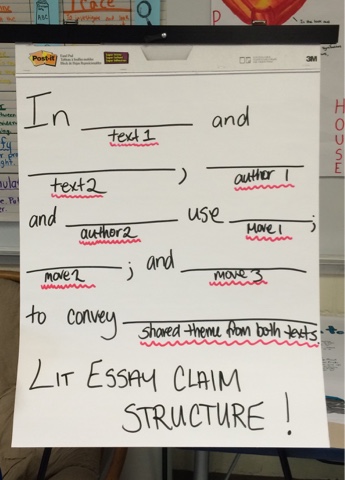 Post-it
3M
In ______ and
text 1
______, ______
text 2 author 1
and ______ use ______;
author 2 Move 1
______; and ______
move 2 move 3
to convey ______
shared theme from both texts.
LIT ESSAY CLAIM
STRUCTURE!
H
O
U
S
E